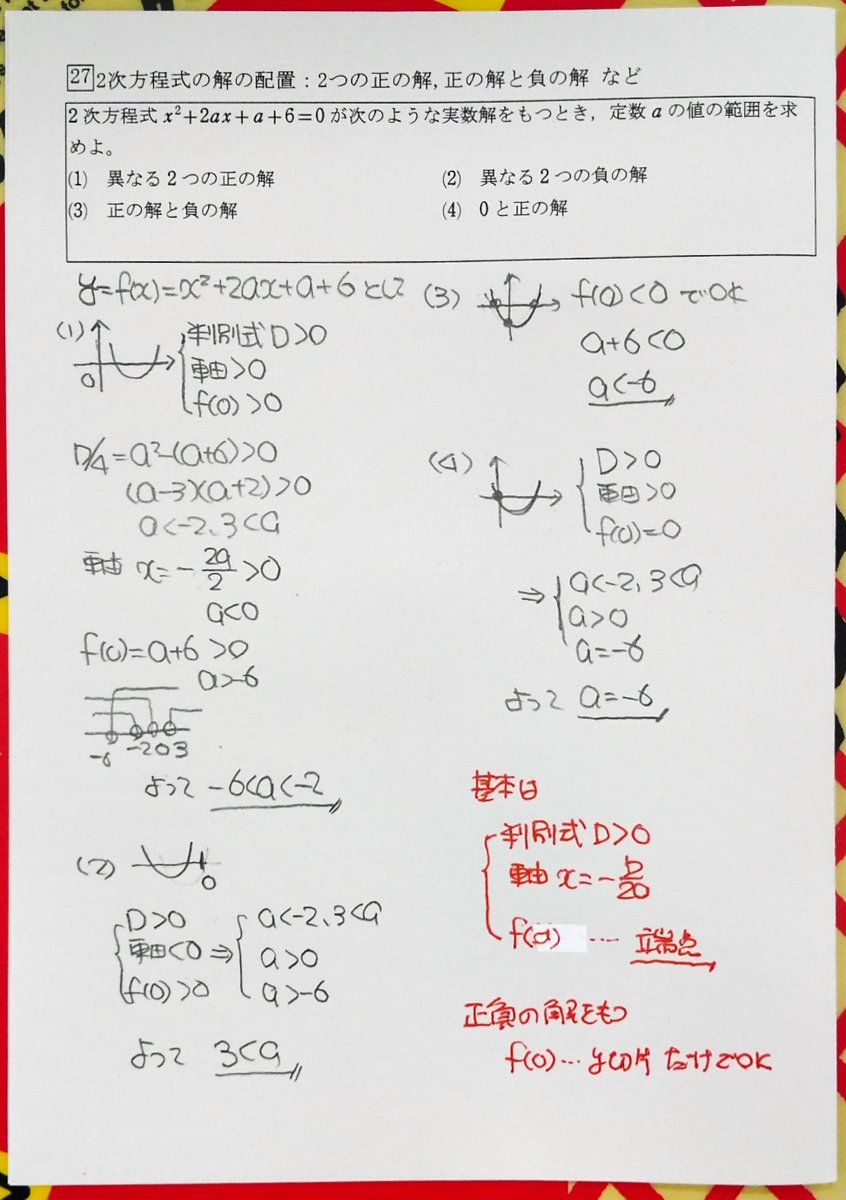 27 2次方程式の解の配置：2つの正の解，正の解と負の解 など
2次方程式 x²+2ax+a+6=0 が次のような実数解をもつとき，定数 a の値の範囲を求
めよ。
(1) 異なる2つの正の解
(2) 異なる2つの負の解
(3) 正の解と負の解
(4) 0と正の解
y=f(x)=x²+2ax+a+6として
(1)
0
判別式D>0
軸>0
f(0)>0
D/4=a²-(a+6)>0
(a-3)(a+2)>0
a<-2、3<a
軸 x=-2a/2>0
a<0
f(0)=a+6>0
a>-6
-6 -2 0 3
よって -6<a<-2
(2)
0
D>0
軸<0
f(0)>0
⇒
a<-2、3<a
a>0
a>-6
よって 3<a
(3)
f(0)<0 でOK
a+6<0
a<-6
(4)
D>0
軸>0
f(0)=0
⇒
a<-2、3<a
a>0
a=-6
よって a=-6
基本は
判別式D>0
軸 x=-b/2a
f(a) … 端点
正負の解をもつ
f(0)…y切片 だけでOK